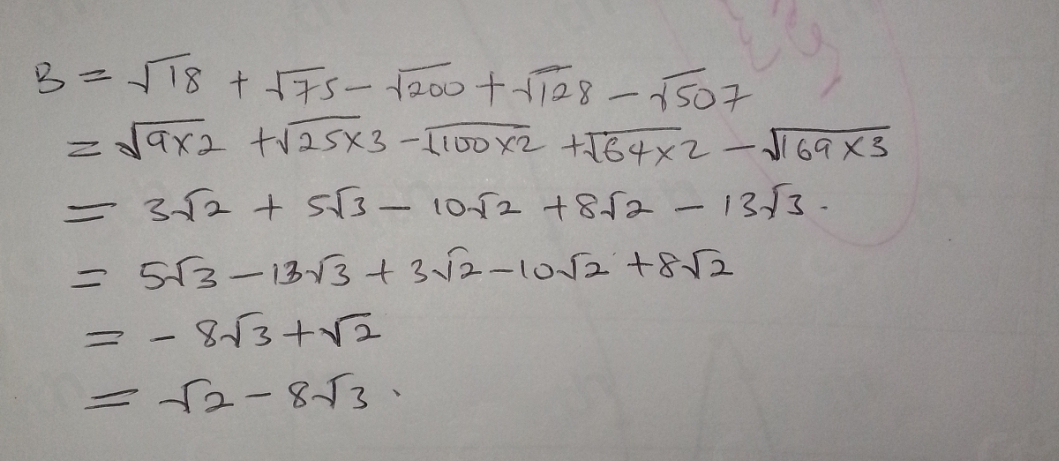 B = √18 + √75 - √200 + √128 - √507
= √9×2 + √25×3 - √100×2 + √64×2 - √169×3
= 3√2 + 5√3 - 10√2 + 8√2 - 13√3.
= 5√3 - 13√3 + 3√2 - 10√2 + 8√2
= - 8√3 + √2
= √2 - 8√3.